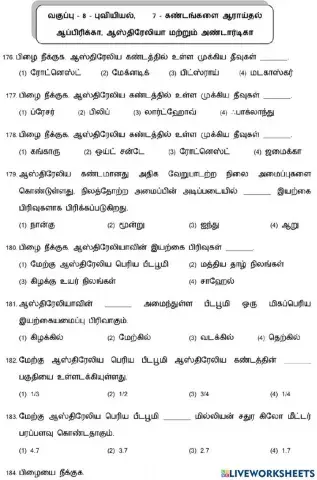 வகுப்பு - 8 - புவியியல், 7 - கண்டங்களை ஆராய்தல்
ஆப்பிரிக்கா, ஆஸ்திரேலியா மற்றும் அண்டார்டிகா
176. பிழை நீக்குக. ஆஸ்திரேலிய கண்டத்தில் உள்ள முக்கிய தீவுகள் _______.
(1) ரோட்னெஸ்ட் (2) மேக்னடிக் (3) பிட்ஸ்ராய் (4) மடகாஸ்கர்
177. பிழை நீக்குக. ஆஸ்திரேலிய கண்டத்தில் உள்ள முக்கிய தீவுகள் _______.
(1) ப்ரேசர் (2) பிலிப் (3) லார்ட்ஹோவ் (4) ஃபாக்லாந்து
178. பிழை நீக்குக. ஆஸ்திரேலிய கண்டத்தில் உள்ள முக்கிய தீவுகள் _______.
(1) கங்காரு (2) ஒயிட் சன்டே (3) ரோட்னெஸ்ட் (4) ஜமைக்கா
179. ஆஸ்திரேலிய கண்டமானது அதிக வேறுபாடற்ற நில அமைப்புகளை
கொண்டுள்ளது. நிலத்தோற்ற அமைப்பின் அடிப்படையில் _______ இயற்கை
பிரிவுகளாக பிரிக்கப்படுகிறது.
(1) நான்கு (2) மூன்று (3) ஐந்து (4) ஆறு
180. பிழை நீக்குக. ஆஸ்திரேலியாவின் இயற்கை பிரிவுகள் _______.
(1) மேற்கு ஆஸ்திரேலிய பெரிய பீடபூமி (2) மத்திய தாழ் நிலங்கள்
(3) கிழக்கு உயர் நிலங்கள் (4) சாஹேல்
181. ஆஸ்திரேலியாவின் _______ அமைந்துள்ள பீடபூமி ஒரு மிகப்பெரிய
இயற்கையமைப்பு பிரிவாகும்.
(1) கிழக்கில் (2) மேற்கில் (3) வடக்கில் (4) தெற்கில்
182. மேற்கு ஆஸ்திரேலிய பெரிய பீடபூமி ஆஸ்திரேலிய கண்டத்தின் _______
பகுதியை உள்ளடக்கியுள்ளது.
(1) 1/3 (2) 1/2 (3) 3/4 (4) 1/4
183. மேற்கு ஆஸ்திரேலிய பெரிய பீடபூமி _______ மில்லியன் சதுர கிலோ மீட்டர்
பரப்பளவு கொண்டதாகும்.
(1) 4.7 (2) 3.7 (3) 2.7 (4) 1.7
184. பிழையை நீக்குக.
LIVEWORKSHEETS